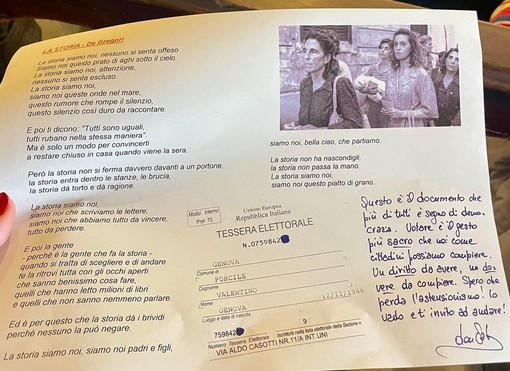 LA STORIA - De Gregori
La storia siamo noi, nessuno si senta offeso
Siamo noi questo prato di aghi sotto il cielo
La storia siamo noi, attenzione,
nessuno si senta escluso.
La storia siamo noi,
siamo noi queste onde nel mare,
questo rumore che rompe il silenzio,
questo silenzio così duro da raccontare.
E poi ti dicono: "Tutti sono uguali,
tutti rubano nella stessa maniera".
Ma è solo un modo per convincerti
a restare chiuso in casa quando viene la sera.
Però la storia non si ferma davvero davanti a un portone,
la storia entra dentro le stanze, le brucia,
la storia dà torto e dà ragione.
La storia siamo noi,
siamo noi che scriviamo le lettere,
siamo noi che abbiamo tutto da vincere,
tutto da perdere.
E poi la gente
- perchè è la gente che fa la storia -
quando si tratta di scegliere e di andare
te la ritrovi tutta con gli occhi aperti
che sanno benissimo cosa fare,
quelli che hanno letto milioni di libri
e quelli che non sanno nemmeno parlare.
Ed è per questo che la storia dà i brividi
perchè nessuno la può negare.
La storia siamo noi, siamo noi padri e figli,
siamo noi, bella ciao, che partiamo.
La storia non ha nascondigli,
la storia non passa la mano.
La storia siamo noi,
siamo noi questo piatto di grano.
Modul. Interno
Pref. 75
Unione Europea
Repubblica Italiana
TESSERA ELETTORALE
N.0759842
GENOVA
Comune di
PORCILE
Cognome
VALENTINO
Nome
GENOVA
Luogo e data di nascita
759842
9
Numero Tessera Elettorale
Iscritto/a nella lista elettorale della Sezione n.
VIA ALDO CASOTTI NR.11/A INT.UNI
Questo è il documento che
più di tutti è segno di demo
crazia. Votare è il gesto
più sacro che noi come
cittadini possiamo compiere.
Un diritto da avere, un do
vere da compiere. Spero che
perda l'astensionismo! Io
vado e ti invito ad andare!